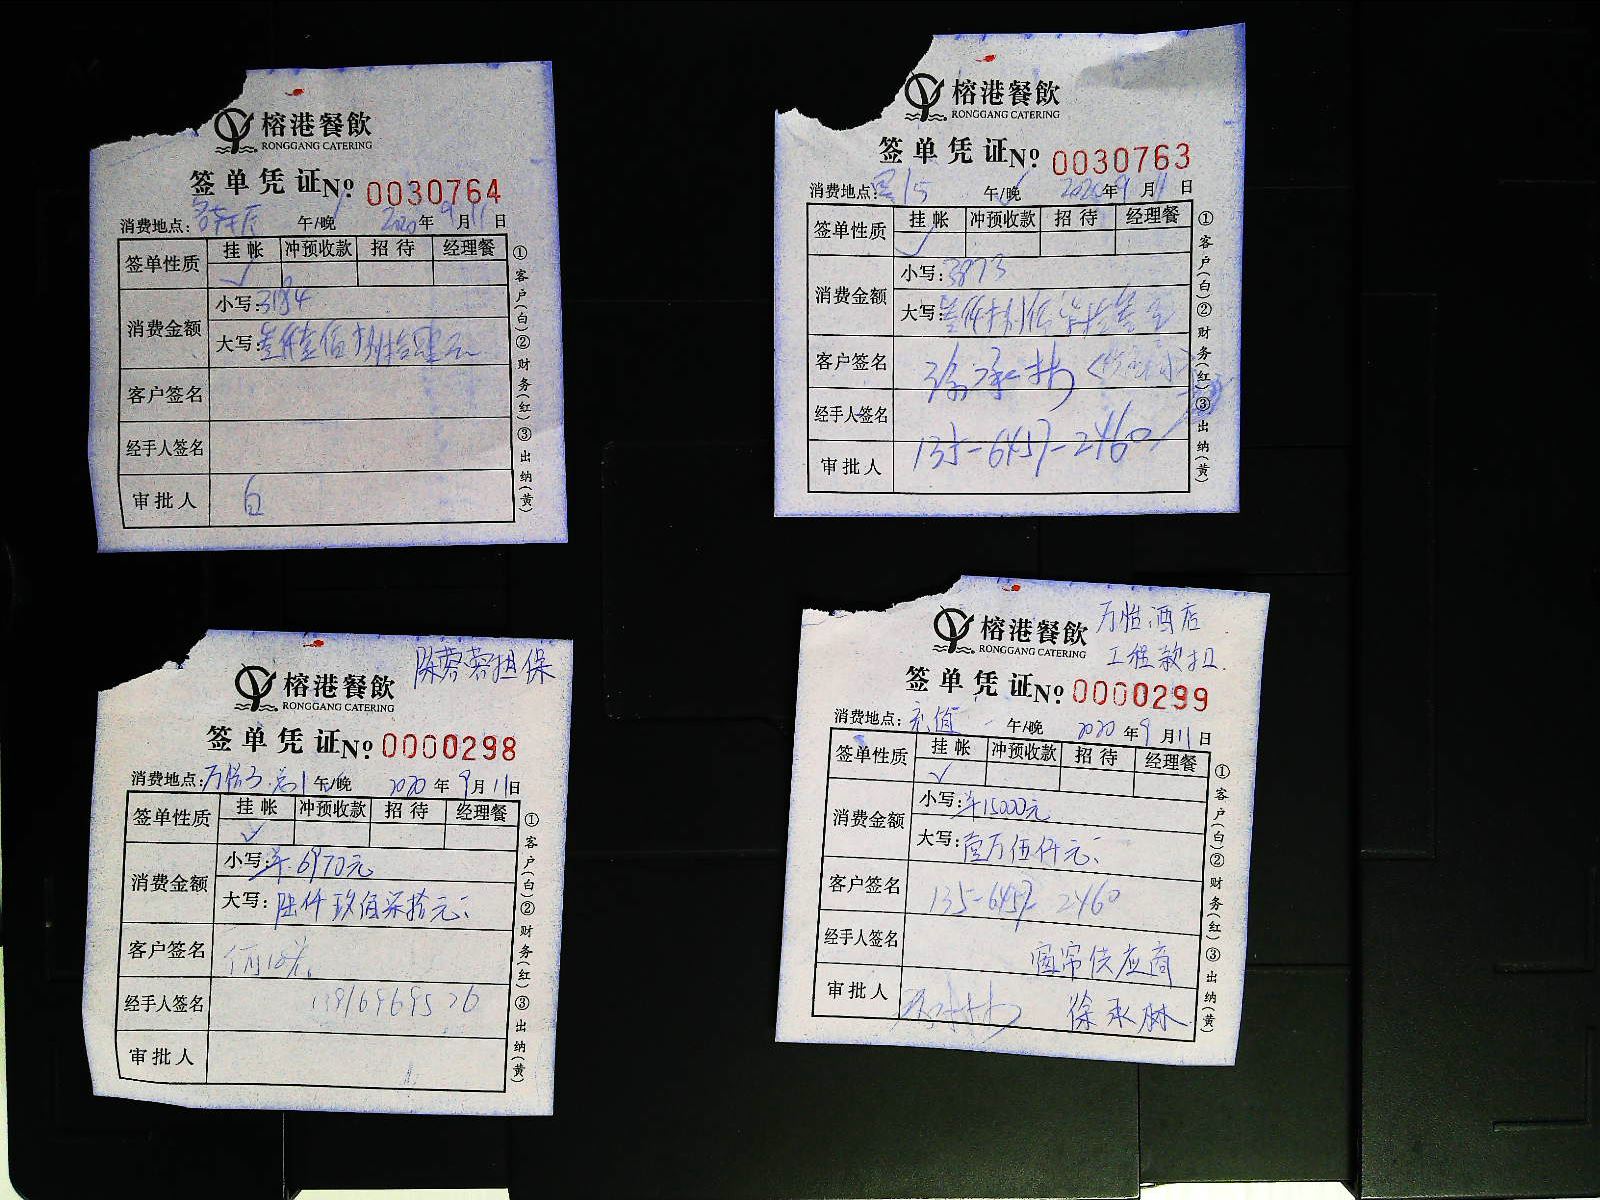 榕港餐飲
RONGGANG CATERING
签单凭证 No 0030764
消费地点: 午/晚 2020年9月11日
签单性质 挂帐 冲预收款 招待 经理餐
✓
消费金额 小写:3184
大写:叁仟壹佰捌拾肆元
客户签名
经手人签名
审批人
①客户(白)②财务(红)③出纳(黄)
榕港餐飲
RONGGANG CATERING
签单凭证 No 0030763
消费地点: 午/晚 2020年9月11日
签单性质 挂帐 冲预收款 招待 经理餐
✓
消费金额 小写:3873
大写:叁仟捌佰柒拾叁元
客户签名 徐承林
经手人签名
135-6457-2460
审批人
①客户(白)②财务(红)③出纳(黄)
陈蓉蓉担保
榕港餐飲
RONGGANG CATERING
签单凭证 No 0000298
消费地点:万怡 午/晚 2020年9月11日
签单性质 挂帐 冲预收款 招待 经理餐
✓
消费金额 小写:羊6970元
大写:陆仟玖佰柒拾元
客户签名
经手人签名 13916969526
审批人
①客户(白)②财务(红)③出纳(黄)
万怡酒店
工程款扣
榕港餐飲
RONGGANG CATERING
签单凭证 No 0000299
消费地点:充值 午/晚 2020年9月11日
签单性质 挂帐 冲预收款 招待 经理餐
✓
消费金额 小写:羊15000元
大写:壹万伍仟元
客户签名 135-6457-2460
经手人签名 窗帘供应商
审批人 徐承林
①客户(白)②财务(红)③出纳(黄)